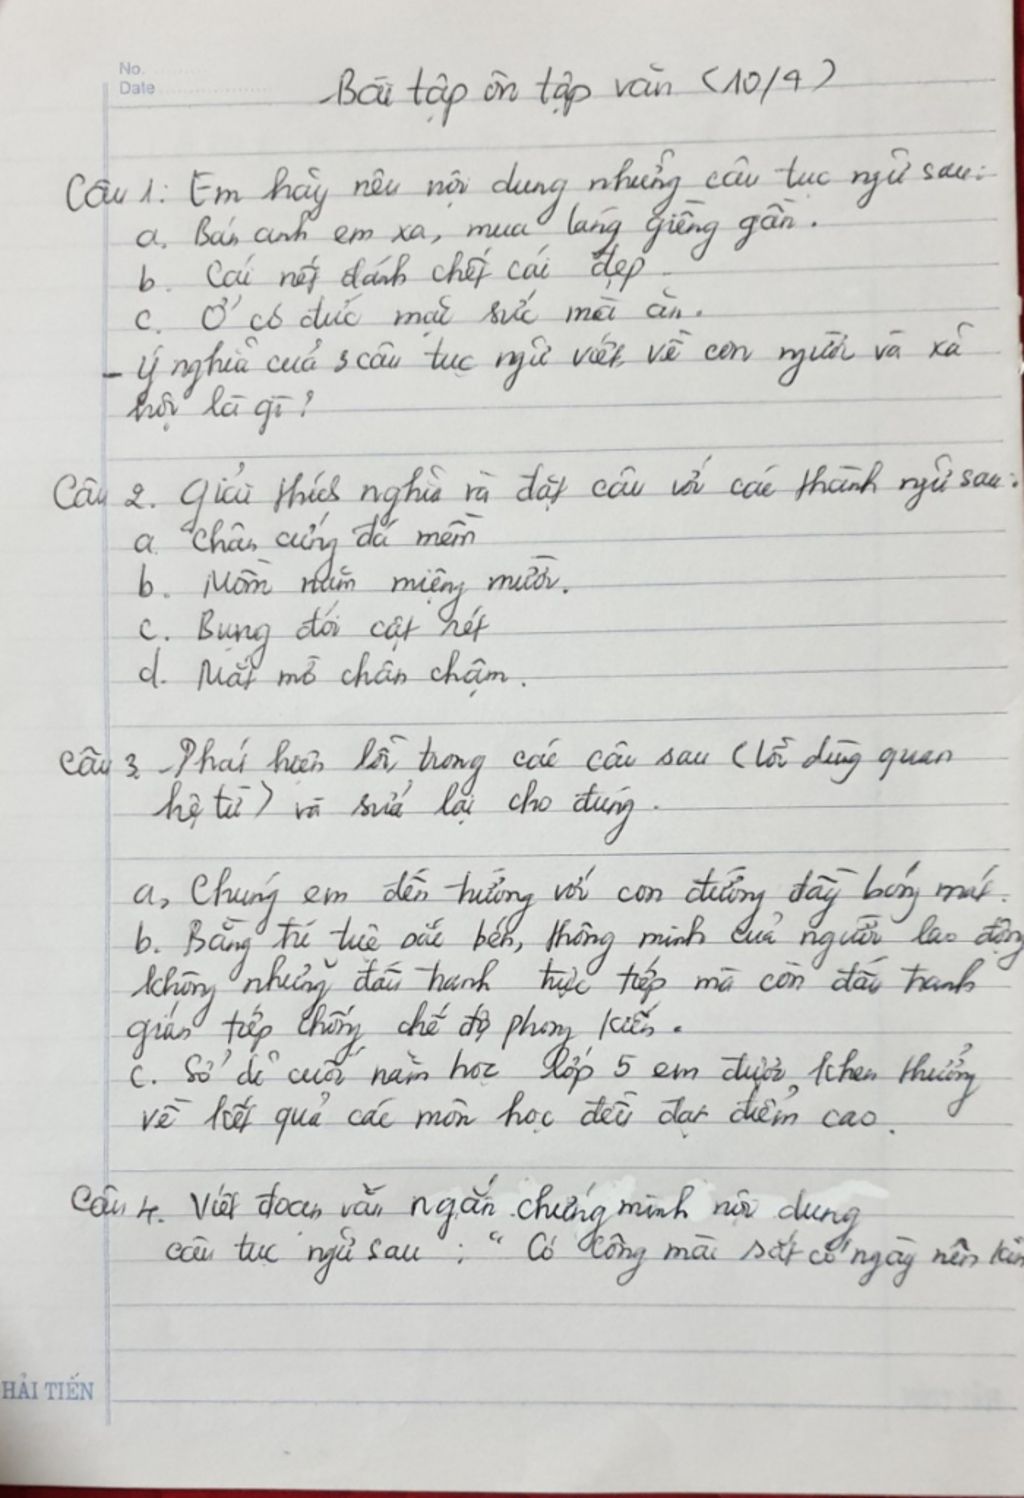 No.
Date
Bài tập ôn tập văn (10/4)
Câu 1: Em hãy nêu nội dung những câu tục ngữ sau:
a. Bán anh em xa, mua láng giềng gần.
b. Cái nết đánh chết cái đẹp.
c. Ở có đức mặc sức mà ăn.
- Ý nghĩa của 3 câu tục ngữ viết về con người và xã
hội là gì?
Câu 2. Giải thích nghĩa và đặt câu với các thành ngữ sau:
a. Chân cứng đá mềm
b. Mồm năm miệng mười.
c. Bụng đói cật rét
d. Mắt mờ chân chậm.
Câu 3. Phát hiện lỗi trong các câu sau (lỗi dùng quan
hệ từ) và sửa lại cho đúng.
a, Chúng em đến trường với con đường đầy bóng mát.
b. Bằng trí tuệ sắc bén, thông minh của người lao động
không những đấu tranh trực tiếp mà còn đấu tranh
gián tiếp chống chế độ phong kiến.
c. Sở dĩ cuối năm học lớp 5 em được khen thưởng
về kết quả các môn học đều đạt điểm cao.
Câu 4. Viết đoạn văn ngắn chứng minh nội dung
câu tục ngữ sau: "Có công mài sắt có ngày nên kim
HẢI TIẾN